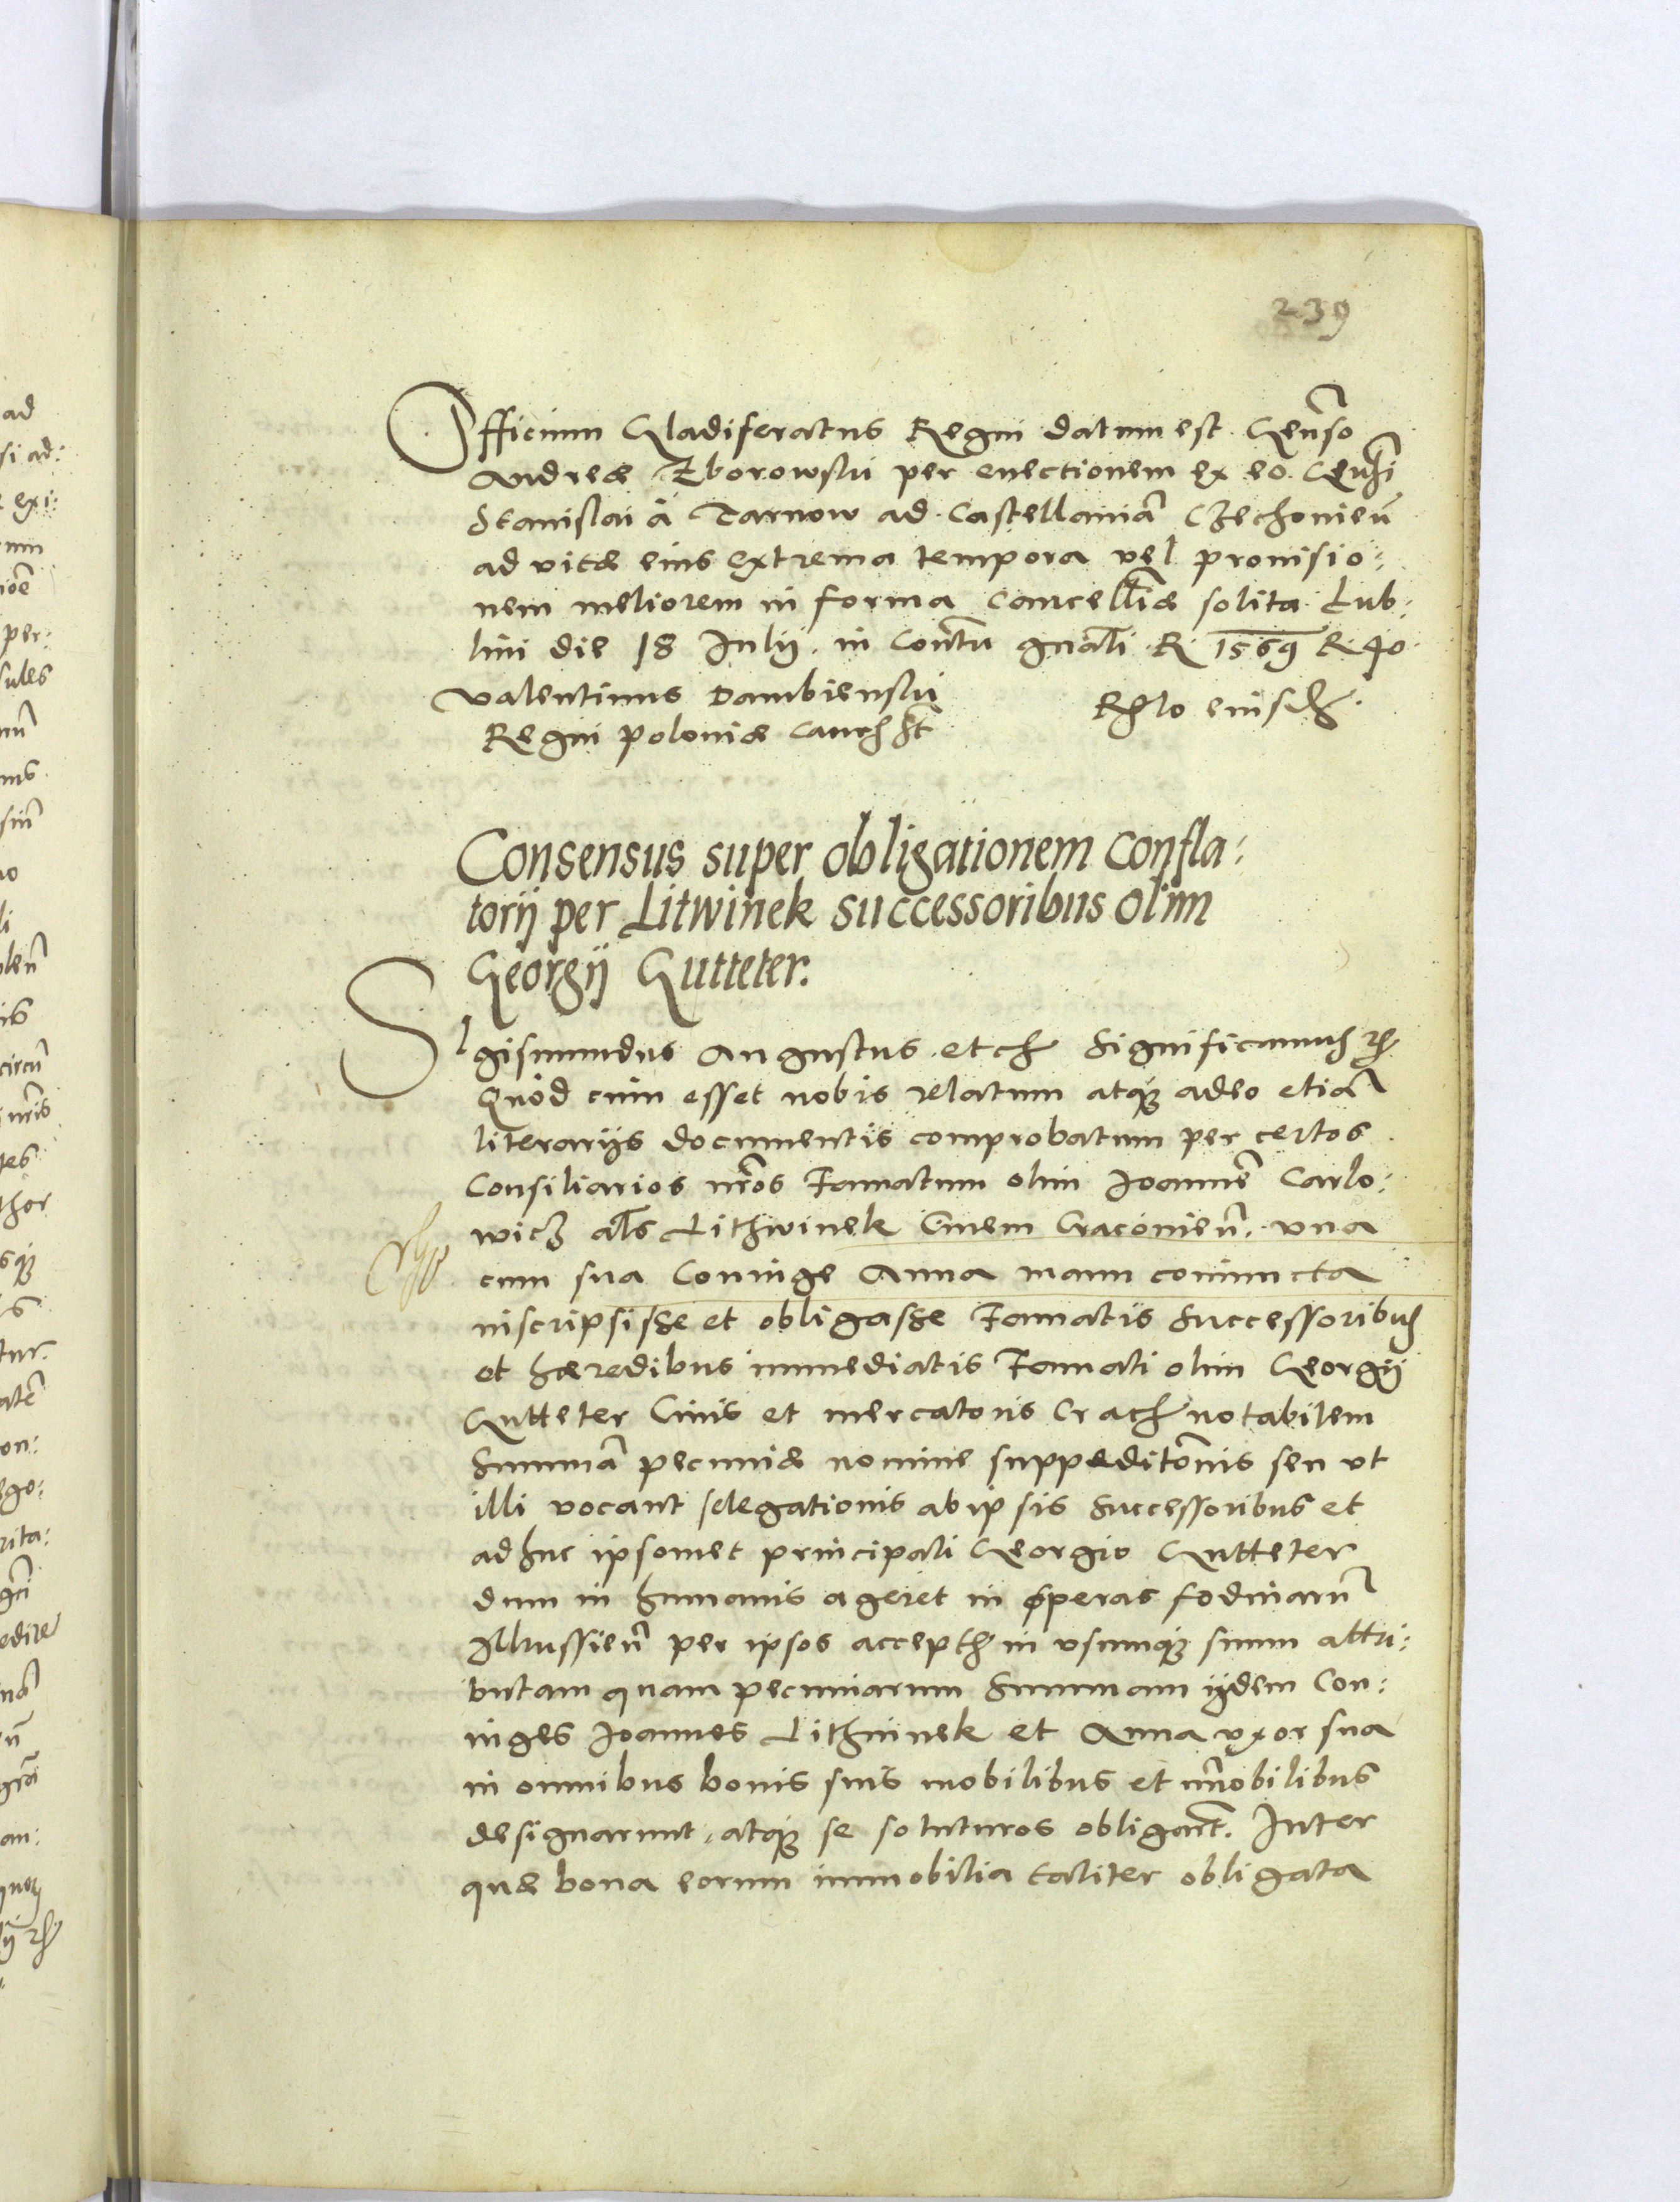 239
Officium Gladiferatus Regni datum est Genroso
Andreæ Zborowski per euectionem ex eo Genrosi
Stanislai à Tarnow ad Castellaniã Czechonieñ
ad vitæ eius extrema tempora vel prouisio:
nem meliorem in forma Cancellriæ solita Lub:
lini die 18 Julij in Contu gnali R 1569 R. 40
Valentinus Dambienski
Regni Poloniæ Canc sst
Rlo eiusd
Consensus super obligationem confla:
torij per Litwinek successoribus olim
Georgij Gutteter.
SIgismundus Augustus etc Significamus etc
Quod cum esset nobis relatum atq adeo etiã
literarijs documentis comprobatum per certos
Consiliarios nros Famatum olim Joannẽ Carlo:
wicz als Lithwinek Ciuem Cracouieñ. vna
cum sua Coniuge Anna manu coniuncta
inscripsisse et obligasse Famatis Successoribus
et hæredibus immediatis Famati olim Georgij
Gutteter Ciuis et mercatoris Crac notabilem
Summã pecuniæ nomine suppeditonis seu vt
illi vocant selegationis ab ipsis Successoribus et
adhuc ipsomet principali Georgio Gutteter
dum in humanis ageret in operas fodinarũ
Ilkussieñ per ipsos accept in vsumq suum attri:
butam quam pecuniarum Summam ijdem Con:
iuges Joannes Lithuinek et Anna vxor sua
in omnibus bonis suis mobilibus et imobilibus
designarunt, atq se soluturos obligart. Inter
quæ bona eorum immobilia taliter obligata